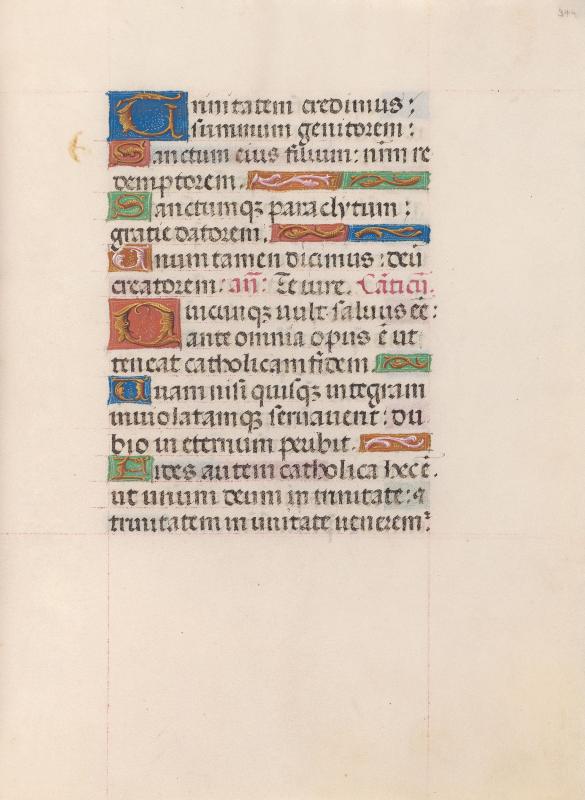 344
Unitatem credimus:
summum genitorem:
Sanctum eius filium: nrm re
demptorem.
Sanctumqꝫ paraclytum:
gratie datorem.
Unum tamen dicimus: deū
creatorem: añ: Te iure. Cāticū.
Quicunqꝫ uult saluus eē:
ante omnia opus ē ut
teneat catholicam fidem
Quam nisi quisqꝫ integram
inuiolatamqꝫ seruauerit: du
bio in eternum peribit.
Fides autem catholica hec ē.
ut unum deum in trinitate: ⁊
trinitatem in unitate uenerem²